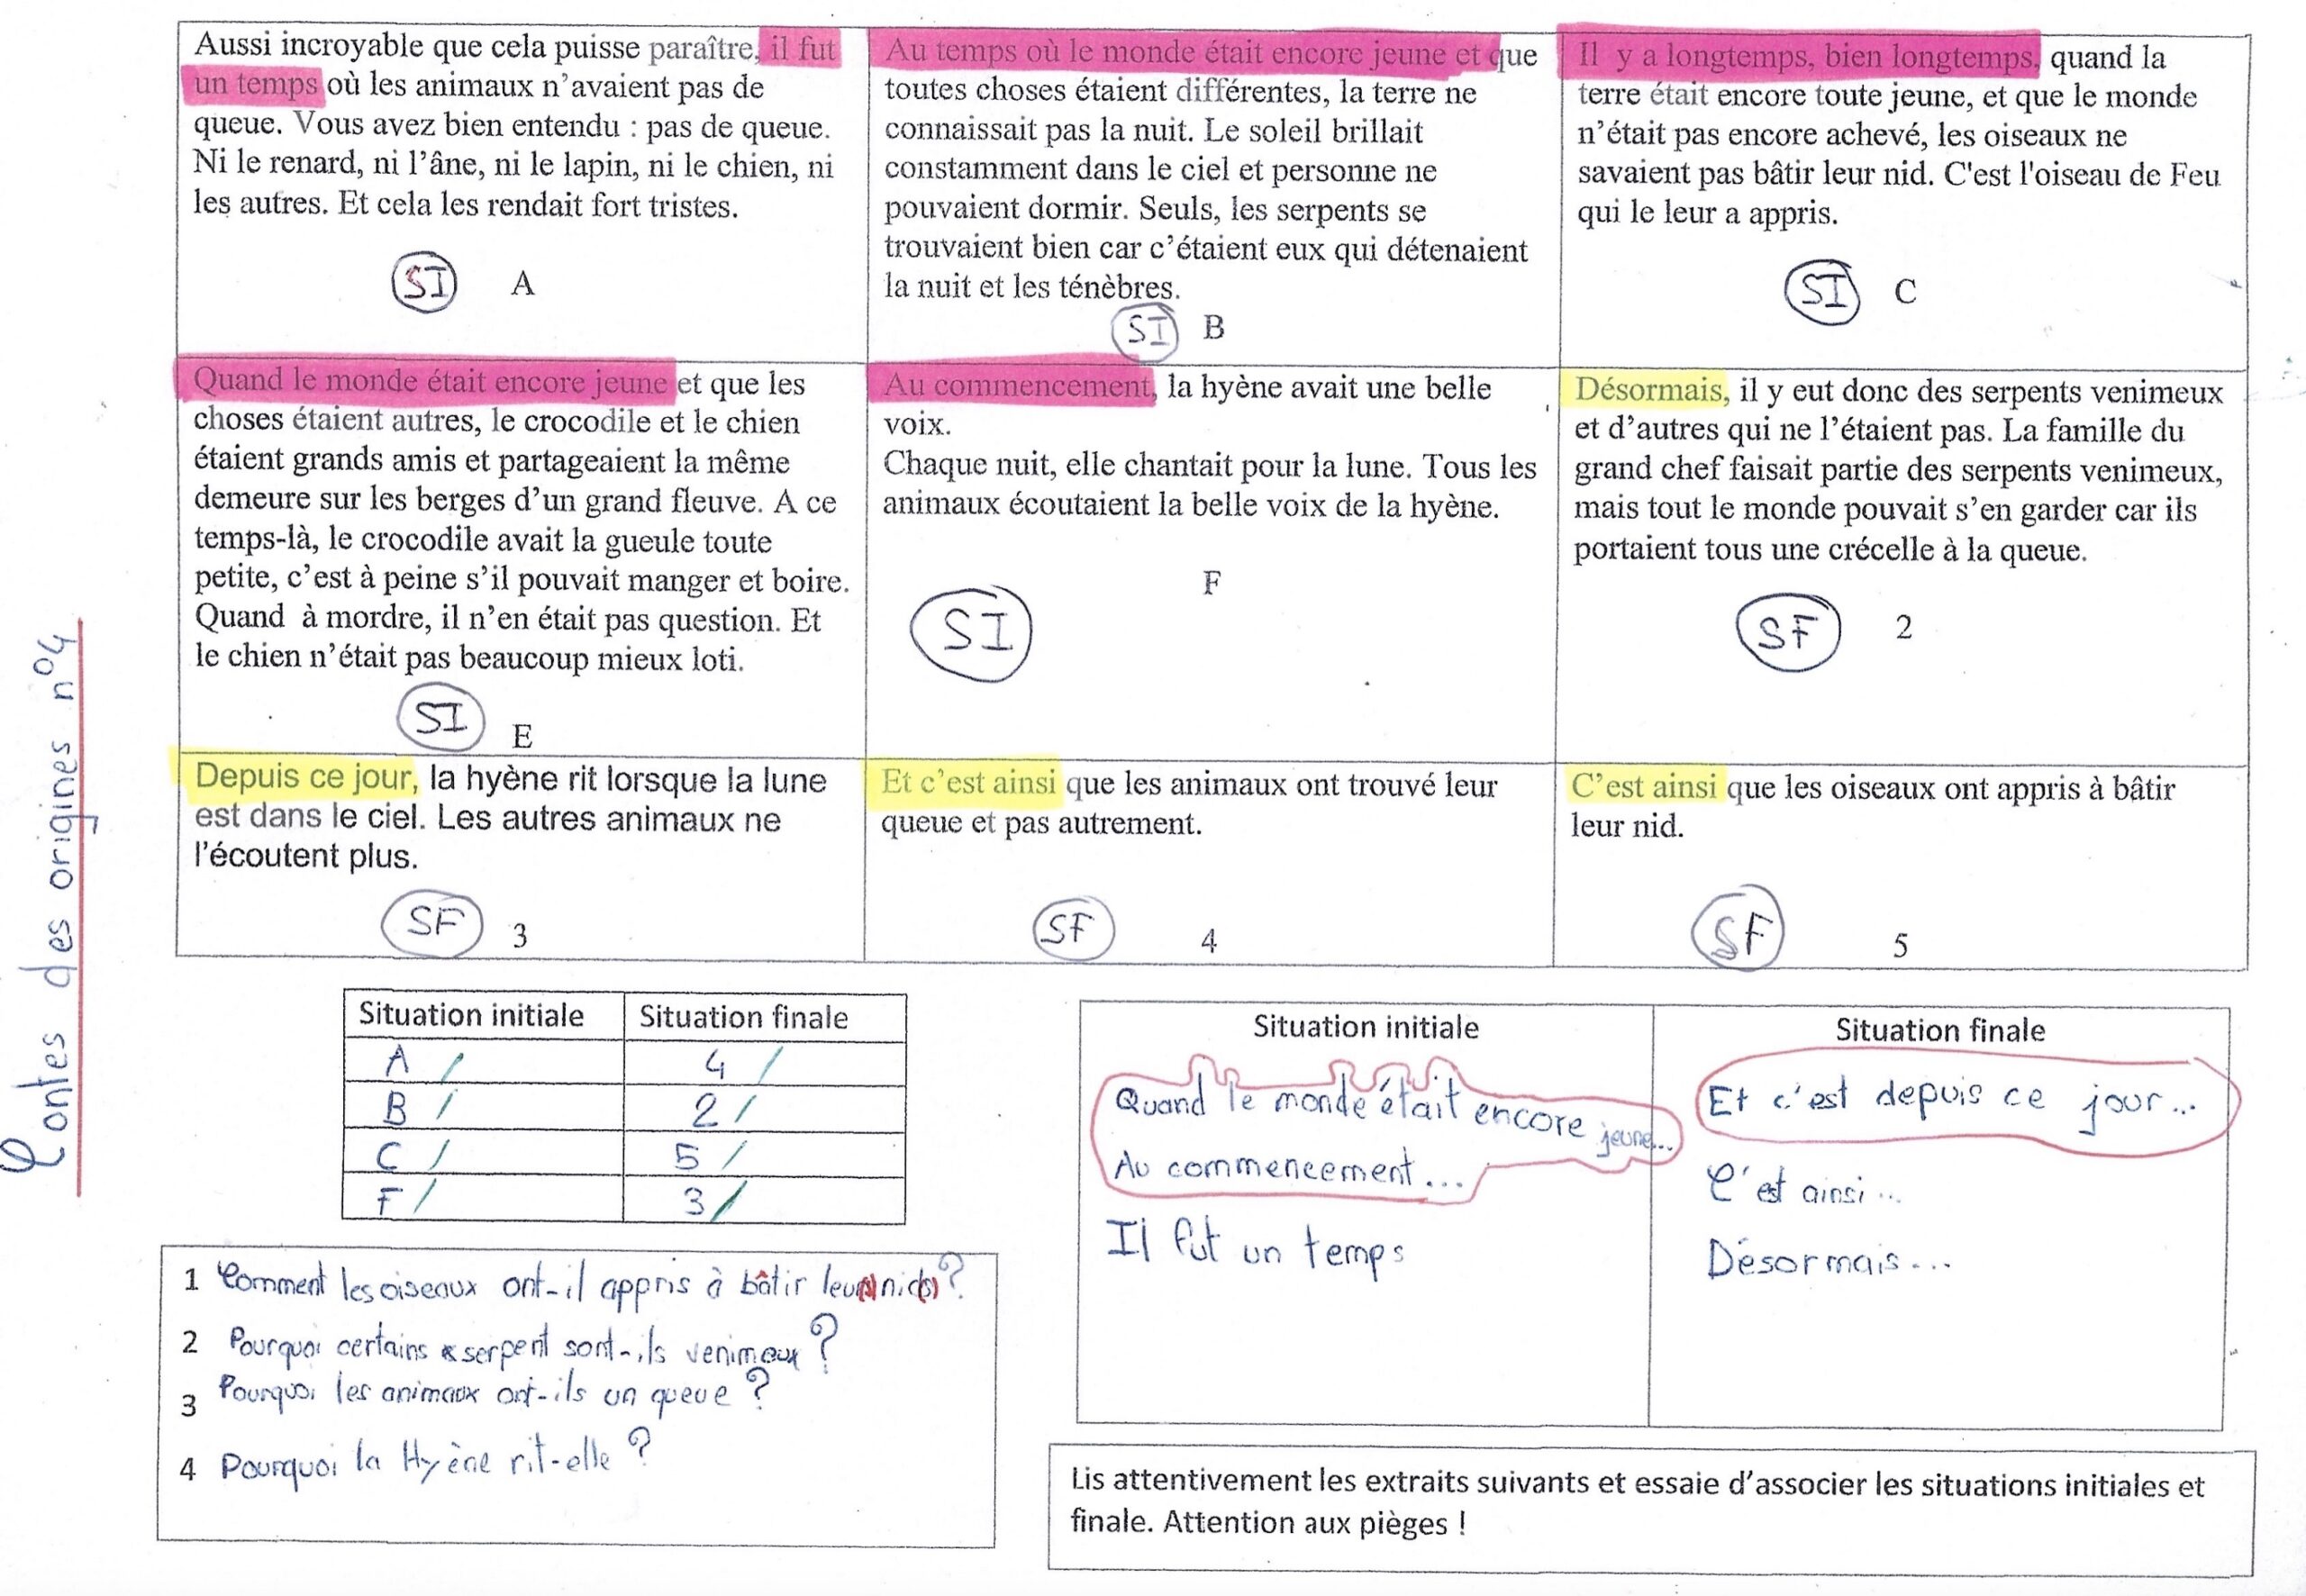 Contes des origines n°4
Aussi incroyable que cela puisse paraître, il fut
un temps où les animaux n'avaient pas de
queue. Vous avez bien entendu : pas de queue.
Ni le renard, ni l'âne, ni le lapin, ni le chien, ni
les autres. Et cela les rendait fort tristes.
SI A
Au temps où le monde était encore jeune et que
toutes choses étaient différentes, la terre ne
connaissait pas la nuit. Le soleil brillait
constamment dans le ciel et personne ne
pouvaient dormir. Seuls, les serpents se
trouvaient bien car c'étaient eux qui détenaient
la nuit et les ténèbres.
SI B
Il y a longtemps, bien longtemps, quand la
terre était encore toute jeune, et que le monde
n'était pas encore achevé, les oiseaux ne
savaient pas bâtir leur nid. C'est l'oiseau de Feu
qui le leur a appris.
SI C
Quand le monde était encore jeune et que les
choses étaient autres, le crocodile et le chien
étaient grands amis et partageaient la même
demeure sur les berges d'un grand fleuve. A ce
temps-là, le crocodile avait la gueule toute
petite, c'est à peine s'il pouvait manger et boire.
Quand à mordre, il n'en était pas question. Et
le chien n'était pas beaucoup mieux loti.
SI E
Au commencement, la hyène avait une belle
voix.
Chaque nuit, elle chantait pour la lune. Tous les
animaux écoutaient la belle voix de la hyène.
F
SI
Désormais, il y eut donc des serpents venimeux
et d'autres qui ne l'étaient pas. La famille du
grand chef faisait partie des serpents venimeux,
mais tout le monde pouvait s'en garder car ils
portaient tous une crécelle à la queue.
SF 2
Depuis ce jour, la hyène rit lorsque la lune
est dans le ciel. Les autres animaux ne
l'écoutent plus.
SF 3
Et c'est ainsi que les animaux ont trouvé leur
queue et pas autrement.
SF 4
C'est ainsi que les oiseaux ont appris à bâtir
leur nid.
SF 5
Situation initiale Situation finale
A 4
B 2
C 5
F 3
Situation initiale
Quand le monde était encore jeune...
Au commencement...
Il fut un temps
Situation finale
Et c'est depuis ce jour...
C'est ainsi...
Désormais...
1 Comment les oiseaux ont-il appris à bâtir leur(s) nid(s)?
2 Pourquoi certains serpent sont-ils venimeux ?
3 Pourquoi les animaux ont-ils un queue ?
4 Pourquoi la Hyène rit-elle ?
Lis attentivement les extraits suivants et essaie d'associer les situations initiales et
finale. Attention aux pièges !